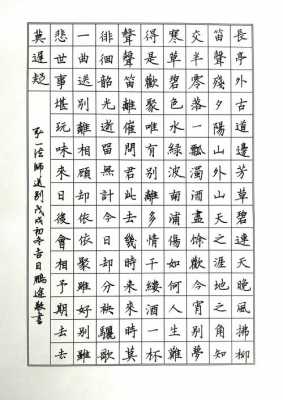 長亭外古道邊芳草碧連天晚風拂柳
笛聲殘夕陽山外山天之涯地之角知
交半零落一瓢濁酒盡餘歡今宵別夢
寒草碧色水綠波南浦傷如何人生難
得是歡聚唯有別離多情千縷酒一杯
聲聲笛離催問君此去幾時來來時莫
徘徊韶光逝留無計今日却分袂驪歌
一曲送別離相顧却依依聚雖好別雖
悲世事堪玩味來日後會相予期去去
莫遲疑
弘一法師送別戊戌初冬吉日鵬途敬書